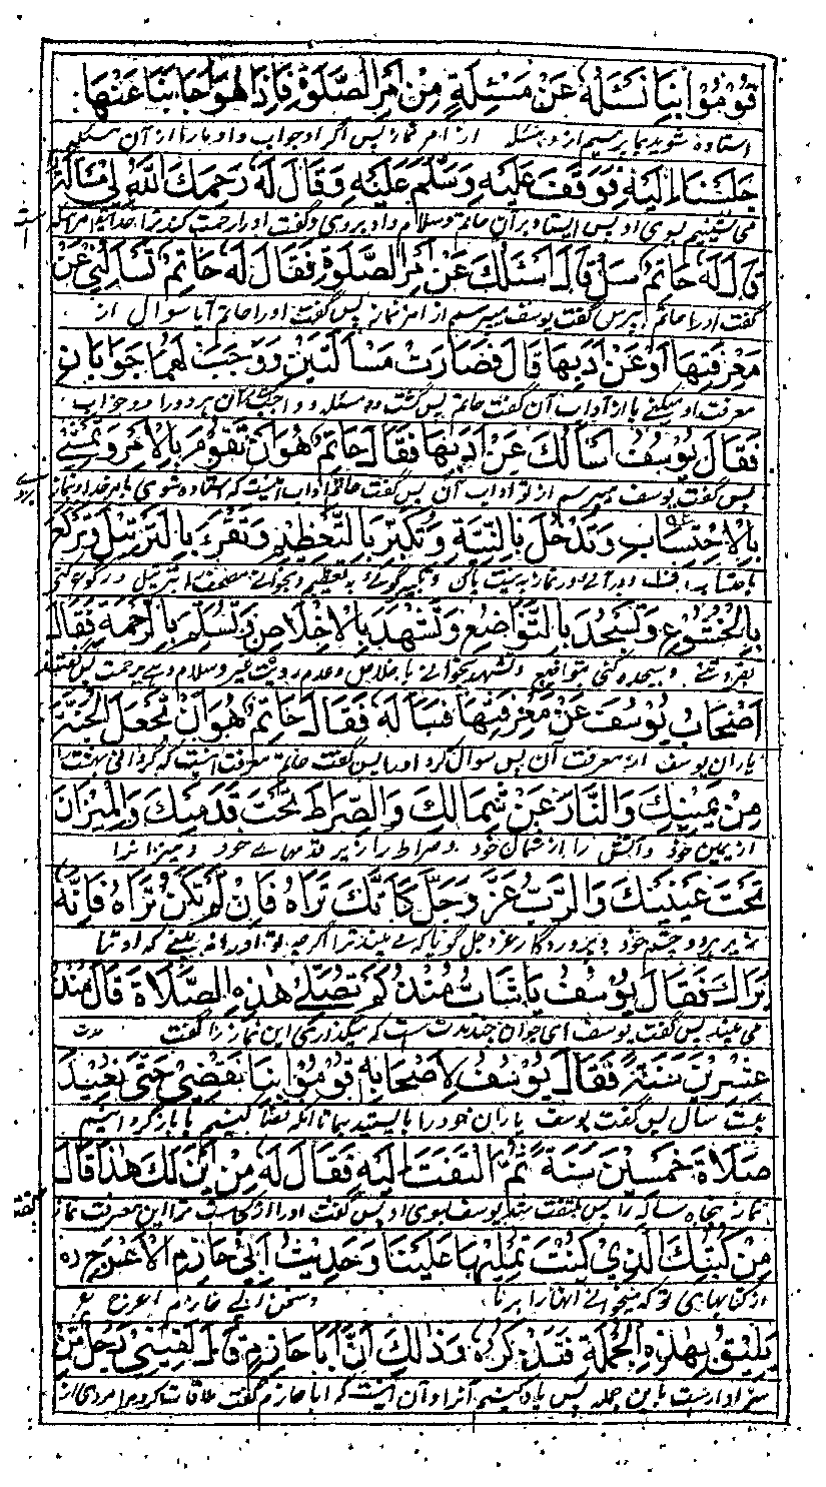 قُومُوا بِنَا نَسْئَلُهُ عَنْ مَسْئَلَةٍ مِنْ أَمْرِ الصَّلَوةِ فَاِذَا هُوَ اَجَابَنَا عَنْهَا
استاده شوید بما پرسیم از و مسئله از امر نماز پس اگر او جواب داد مارا از آن مسئله
جَلَسْنَا اِلَيْهِ فَوَقَفَ عَلَيْهِ وَسَلَّمَ عَلَيْهِ وَقَالَ لَهُ رَحِمَكَ اللّٰهُ لِي مَسْأَلَةٌ
می نشینیم بسوی او پس ایستاد بران حاتم و سلام داد بروی و گفت اورا رحمت کند ترا خدا مرا مسئله است
قَالَ لَهُ حَاتِمُ سَلْ قَالَ اَسْئَلُكَ عَنْ اَمْرِ الصَّلَوةِ فَقَالَ لَهُ حَاتِمُ تَسْاَلُنِي عَنْ
گفت اورا حاتم بپرس گفت یوسف میپرسم از امر نماز پس گفت اورا حاتم آیا سوال از
مَعْرِفَتِهَا اَوْ عَنْ اَدَبِهَا قَالَ فَصَارَتْ مَسْاَلَتَيْنِ وَوَجَبَ لَهُمَا جَوَابَانِ
معرفت او میکنی یا از آداب آن گفت حاتم پس گشت دو مسئله و واجب شد آن هر دورا دو جواب
فَقَالَ يُوسُفُ اَسْاَلُكَ عَنْ اَدَبِهَا فَقَالَ حَاتِمُ هُوَ اَنْ تَقُومَ بِالْاَمْرِ وَتَمْشِيَ
پس گفت یوسف میپرسم از تو آداب آن پس گفت حاتم آداب آنست که استاده شوی بامر خدا و نماز
بِالْاِحْتِسَابِ وَتَدْخُلَ بِالنِّيَّةِ وَتُكَبِّرَ بِالتَّعْظِيمِ وَتَقْرَءَ بِالتَّرْتِيلِ وَتَرْكَعَ
باحتساب و درآئی در نماز به نیت پاک و تکبیر گوئی به تعظیم و بخوانی بترتیل و رکوع کنی
بِالْخُشُوعِ وَتَسْجُدَ بِالتَّوَاضُعِ وَتَشْهَدَ بِالْاِخْلَاصِ وَتُسَلِّمَ بِالرَّحْمَةِ فَقَالَ
بفروتنی و سجده کنی بتواضع و تشهد بخوانی باخلاص و عدم رویت غیر و سلام دهی برحمت پس گفتند
اَصْحَابُ يُوسُفَ عَنْ مَعْرِفَتِهَا فَسَاَلَهُ فَقَالَ حَاتِمُ هُوَ اَنْ تَجْعَلَ الْجَنَّةَ
یاران یوسف از معرفت آن پس سوال کرد اورا پس گفت حاتم معرفت آنست که گردانی بهشت را
مِنْ يَمِينِكَ وَالنَّارَ عَنْ شِمَالِكَ وَالصِّرَاطَ تَحْتَ قَدَمَيْكَ وَالْمِيزَانَ
از یمین خود و آتش را از شمال خود و صراط را زیر قدمهای خود و میزان را
تَحْتَ عَيْنَيْكَ وَالرَّبَّ عَزَّ وَجَلَّ كَاَنَّكَ تَرَاهُ فَاِنْ لَمْ تَكُنْ تَرَاهُ فَاِنَّهُ
زیر هر دو چشم خود و پروردگار عز و جل گویا که می بیند ترا اگرچه تو اورا نه بینی که او ترا
يَرَاكَ فَقَالَ يُوسُفُ يَا شَابُّ مُنْذُ كَمْ تُصَلِّي هٰذِهِ الصَّلَاةَ قَالَ مُنْذُ
می بیند پس گفت یوسف ای جوان چند مدت است که میگذاری این نماز را گفت مدت
عِشْرِينَ سَنَةً فَقَالَ يُوسُفُ لِاَصْحَابِهِ قُومُوا بِنَا نَقْضِي حَتّٰى نُعِيدَ
بیست سال پس گفت یوسف یاران خود را بایستید بما تا آنکه قضا کنیم یا باز گردانیم
صَلَاةَ خَمْسِينَ سَنَةً ثُمَّ الْتَفَتَ اِلَيْهِ فَقَالَ لَهُ مِنْ اَيْنَ لَكَ هٰذَا قَالَ
نماز پنجاه ساله را پس ملتفت شد یوسف بسوی او پس گفت اورا از کجاست ترا این معرفت نماز گفت
مِنْ كُتُبِكَ الَّذِي كُنْتَ تُمْلِيهَا عَلَيْنَا وَحَدِيثُ اَبِي حَازِمِ الْاَعْرَجِ ره
از کتابهای تو که میخوانی آنها را بر ما و سخن ابی حازم اعرج
يَلِيقُ بِهٰذِهِ الْجُمْلَةِ فَنَذْكُرُهُ وَذٰلِكَ اَنَّ اَبَا حَازِمٍ قَالَ لَقِيَنِي رَجُلٌ مِنْ
سزاوارست باین جمله پس یاد کنیم آنرا و آن آنست که ابا حازم گفت ملاقات کرد مرا مردی از